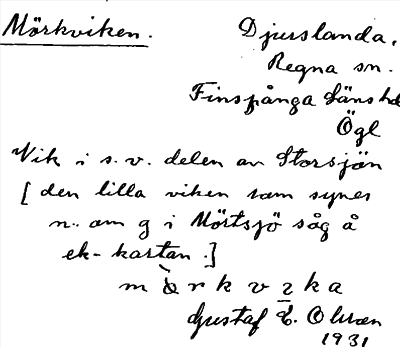 Mörkviken. Djurslanda,
Regna sn.
Finspånga läns hd
Ögl
Vik i s. v. delen av Storsjön
[den lilla viken som synes
n. om g i Mörtsjö såg å
ek-kartan.]
Gustaf E. Olsson
1931